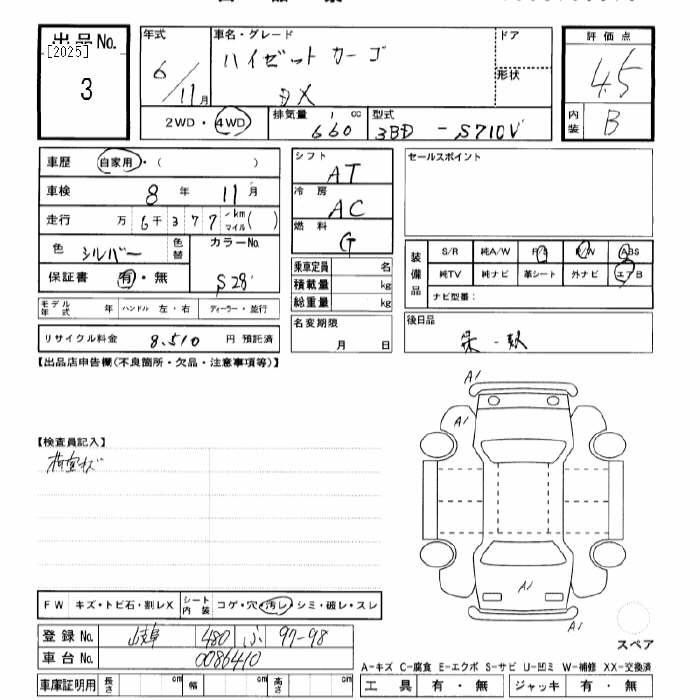 出品No.
[2025]
3
年式
6/11月
車名・グレード
ハイゼットカーゴ
DX
ドア
形状
評価点
4.5
内装 B
2WD・4WD
排気量 660 cc
型式 3BD-S710V
車歴 自家用・( )
車検 8年 11月
走行 万 6千 3 7 7 km マイル( )
色 シルバー 色替
カラーNo. S28
保証書 有・無
モデル年式 年 ハンドル 左・右 ディーラー・並行
リサイクル料金 8,510 円 預託済
シフト AT
冷房 AC
燃料 G
乗車定員 名
積載量 kg
総重量 kg
名変期限
月 日
セールスポイント
装備品
S/R 純A/W P/S P/W ABS
純TV 純ナビ 革シート 外ナビ エアB
ナビ型番:
後日品
【出品店申告欄(不良箇所・欠品・注意事項等)】
【検査員記入】
荷室キズ
A1
A1
A1
A1
スペア
FW キズ・トビ石・割レX シート内装 コゲ・穴・汚レ・シミ・破レ・スレ
登録No. 岐阜 480 ふ 97-98
車台No. 0086410
車庫証明用 長さ cm 幅 cm 高さ cm
A-キズ C-腐食 E-エクボ S-サビ U-凹ミ W-補修 XX-交換済
工具 有・無 ジャッキ 有・無